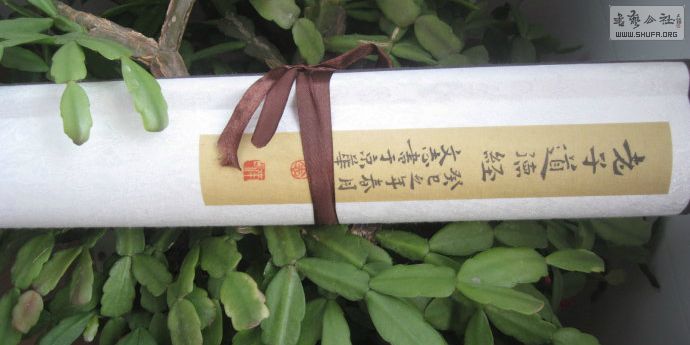 老子道德经
癸巳之年春月
文志書于京華
公社
WWW.SHUFA.ORG